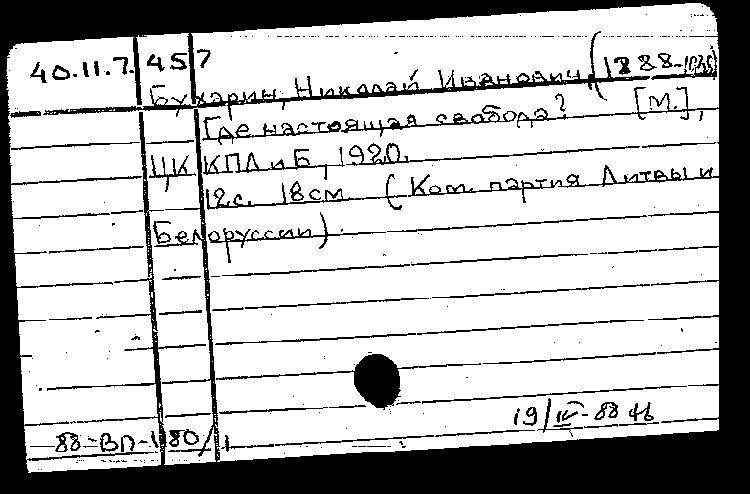 40.11.7. 457
Бухарин, Николай Иванович, (1888-
Где настоящая свобода? [М.],
ЦК КПЛиБ, 1920.
12с. 18см (Ком. партия Литвы и
Белоруссии)
88-ВП-1180/1
19/IV-88